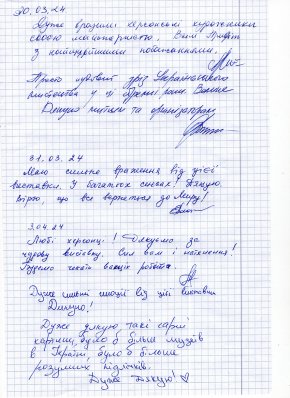 30.03.24
Дуже вразили херсонські художники
своєю майстерністю. Всім Миру
з найщирішими побажаннями.
Просто чудовий
мистецтва у ці
Дякую митцям та організаторам
31.03.24
Маю сильне враження від цієї
виставки. У багатьох сенсах! Дякую
Вірю, що все вернеться до Миру!
3.04.24
Любі херсонці! Дякуємо за
чудову виставку. Сил вам і натхнення!
Будемо чекати ваших робіт
Дуже сильні емоції від цієї виставки
Дякую!
Дуже дякую такі гарні
картини, було б більше музеїв
в Україні, було б більше
розумних підлітків.
Дуже дякую!